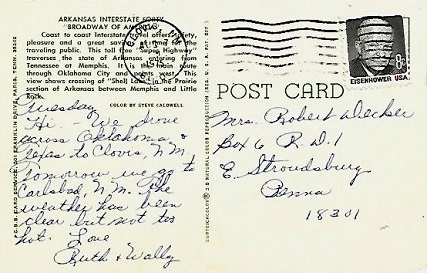 ARKANSAS INTERSTATE FORTY
"BROADWAY OF AMERICA"
Coast to coast Interstate travel offers safety,
pleasure and a great saving of time for the
traveling public. This toll free "Super Highway"
traverses the state of Arkansas entering from
Memphis, Tennessee. It is the main route
through Oklahoma City and points west. This
view shows crossing of "Shell Lake" in the Prairie
section of Arkansas between Memphis and Little
Rock.
COLOR BY STEVE CALDWELL
Tuesday
Hi - We drove
across Oklahoma &
Texas to Clovis, N.M.
Tomorrow we go to
Carlsbad, N.M. The
weather has been
clear but not too
hot. Love
Ruth & Wally
8¢
EISENHOWER USA
POST CARD
Mrs. Robert Decker
Box 6 R.D. 1
E. Stroudsburg
Penna
18301